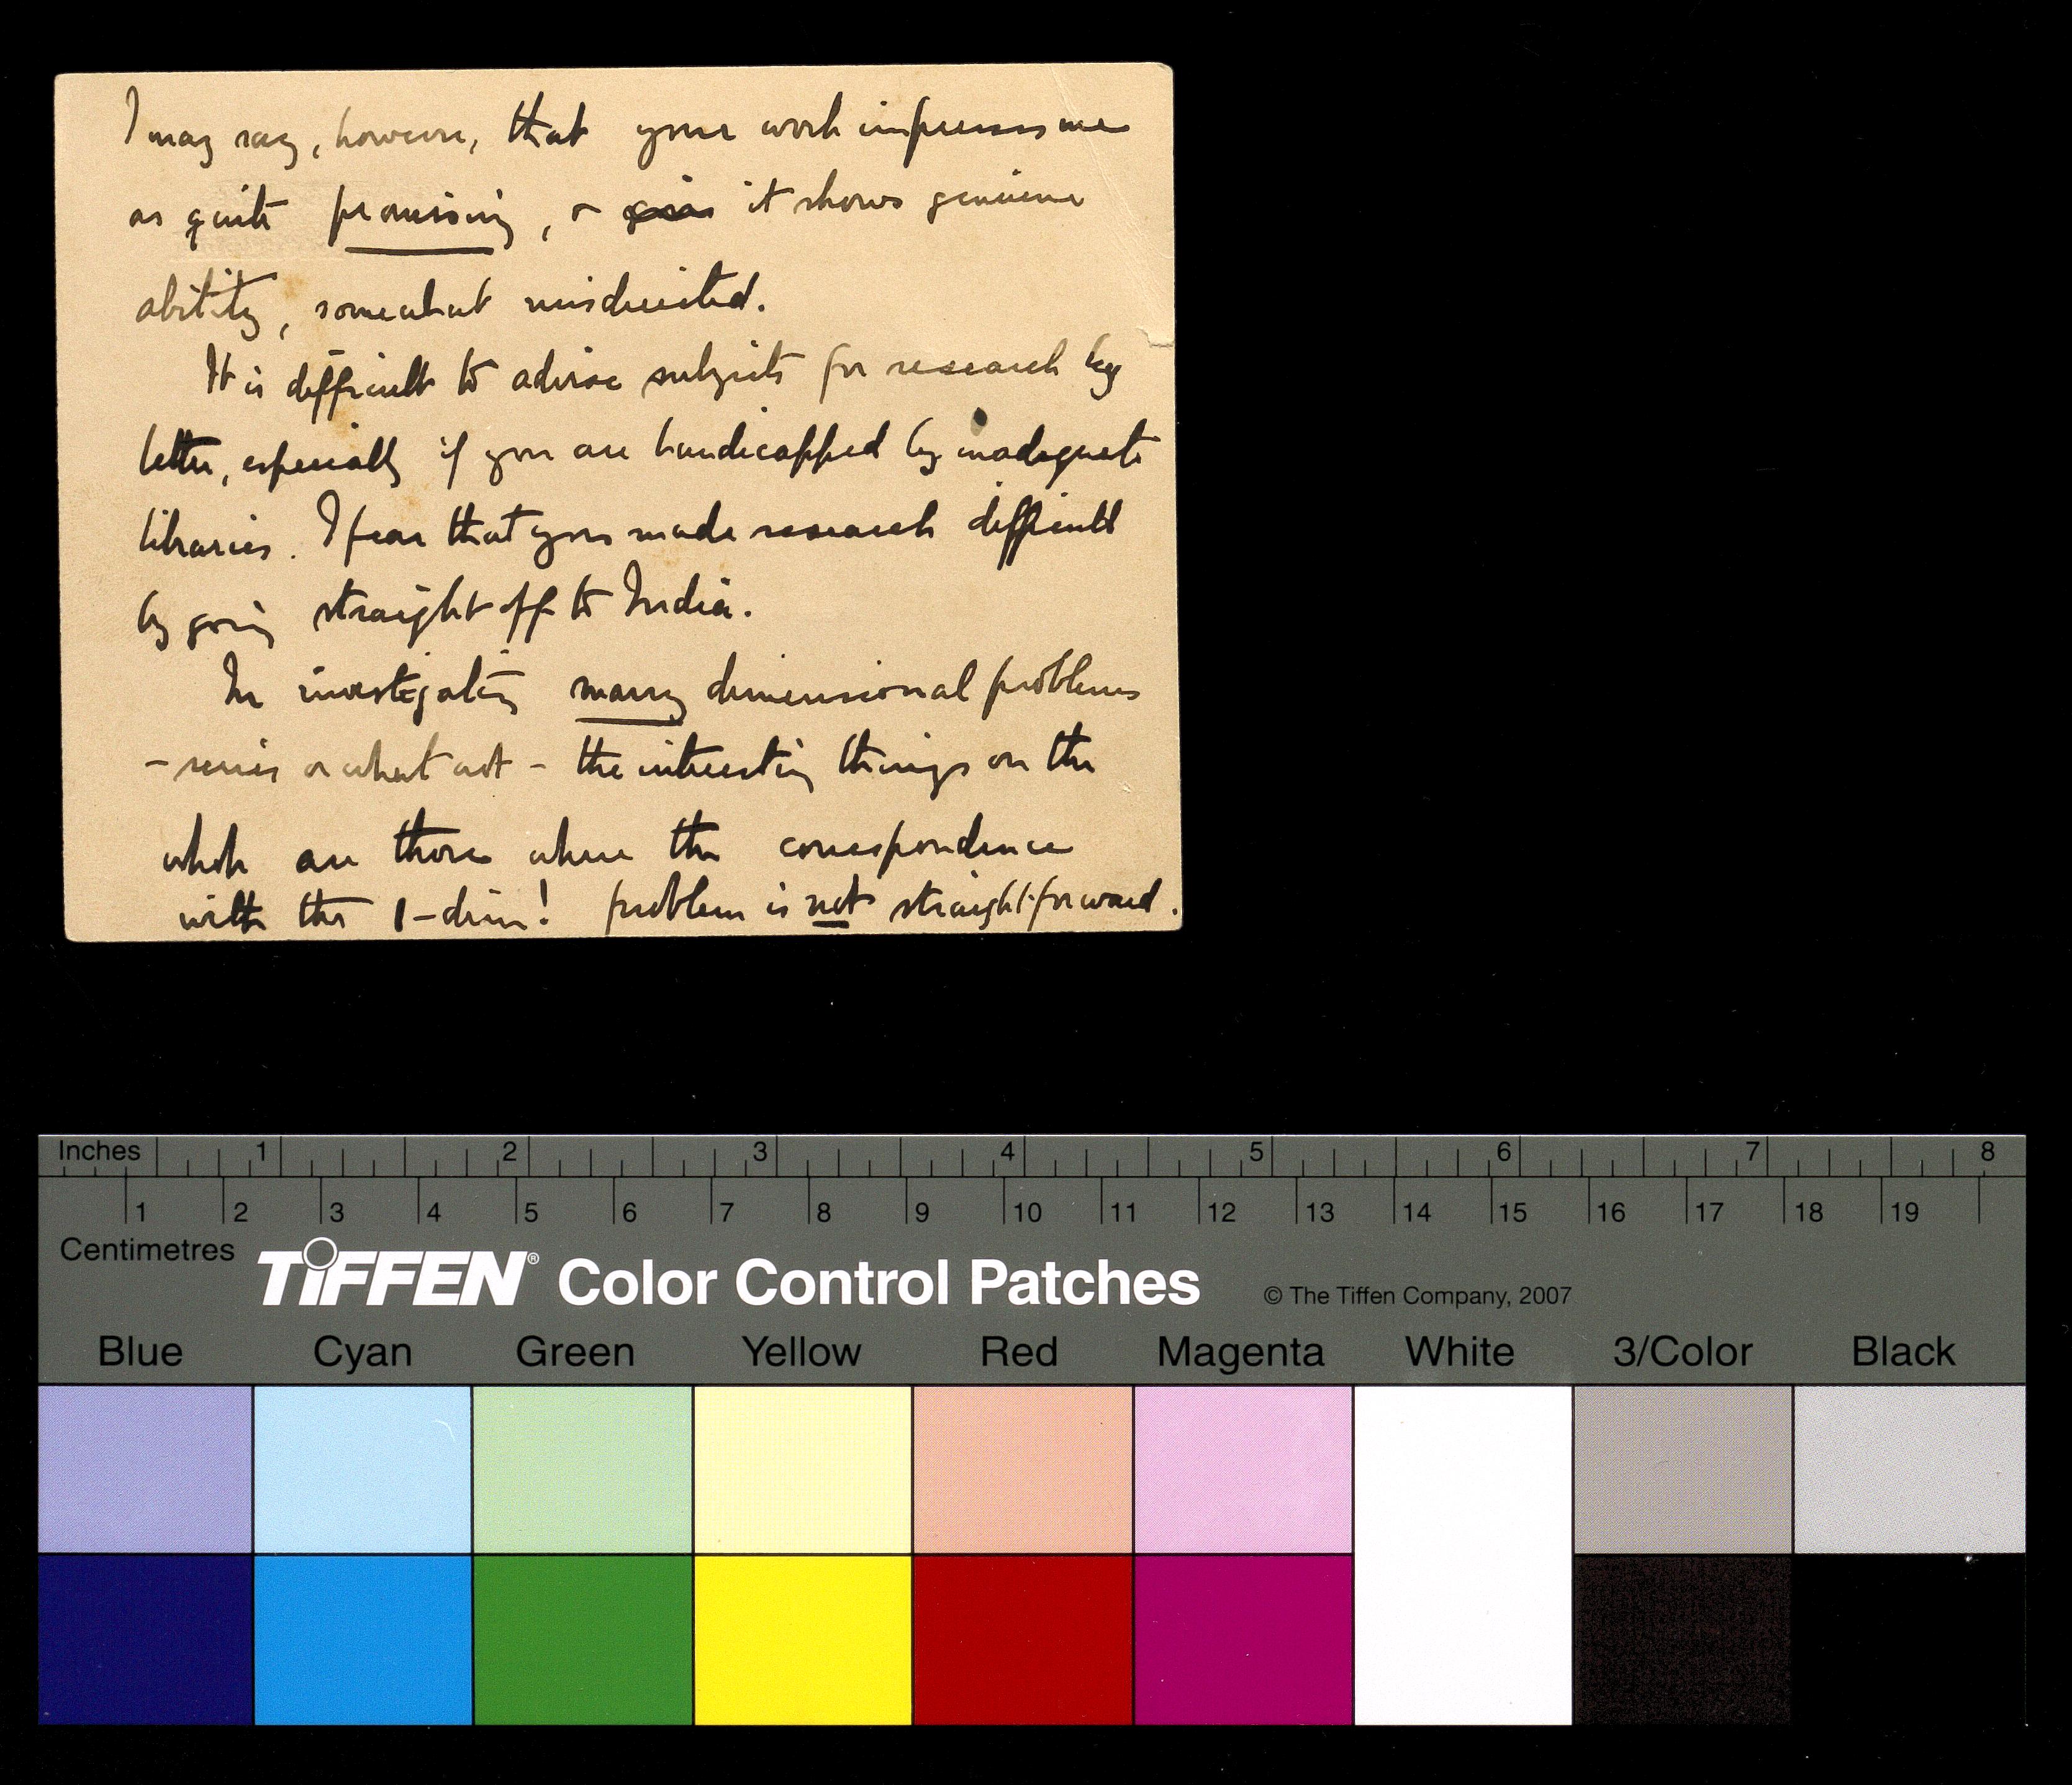 I may say, however, that your work impresses me
as quite promising, & it shows genuine
ability, somewhat misdirected.
It is difficult to advise subjects for research by
letter, especially if you are handicapped by inadequate
libraries. I fear that you made research difficult
by going straight off to India.
In investigating many dimensional problems
- series or what not - the interesting things on the
whole are those where the correspondence
with the 1-dim! problem is not straightforward.
Inches 1 2 3 4 5 6 7 8
1 2 3 4 5 6 7 8 9 10 11 12 13 14 15 16 17 18 19
Centimetres
TIFFEN® Color Control Patches © The Tiffen Company, 2007
Blue Cyan Green Yellow Red Magenta White 3/Color Black